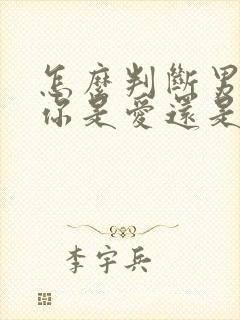 怎麼判斷男
你是愛還是
李宇兵